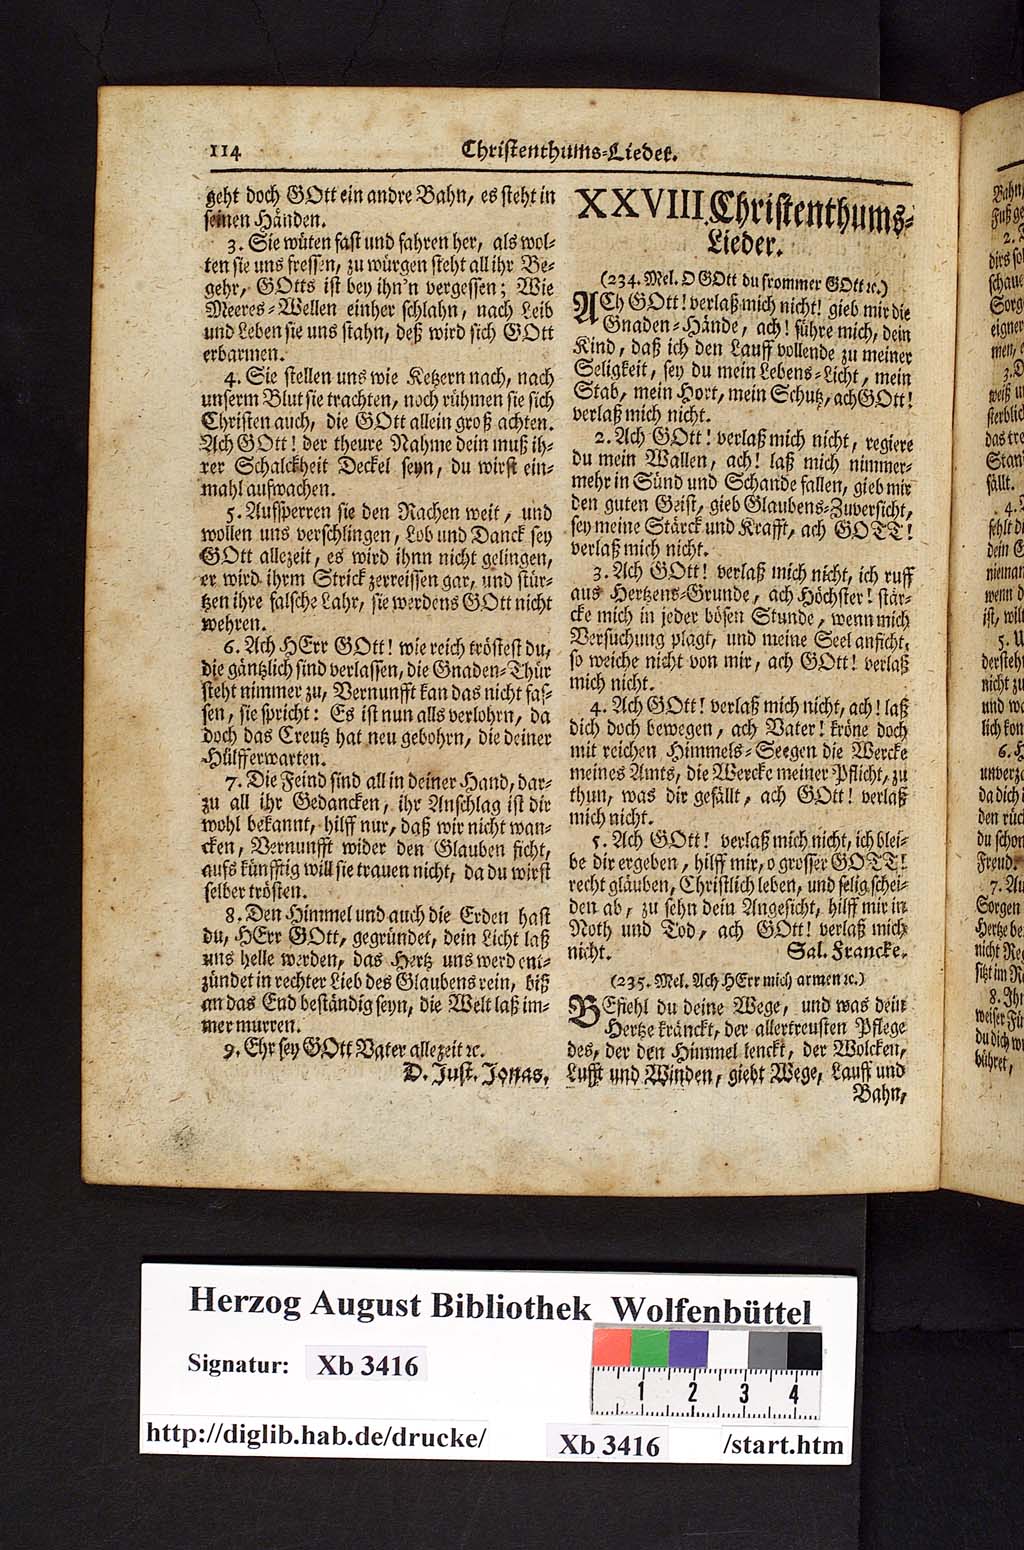 114 Christenthums-Lieder.
geht doch GOtt ein andre Bahn, es steht in
seinen Händen.
3. Sie wüten fast und fahren her, als wol-
ten sie uns fressen, zu würgen steht all ihr Be-
gehr, GOtts ist bey ihn'n vergessen; Wie
Meeres-Wellen einher schlahn, nach Leib
und Leben sie uns stahn, deß wird sich GOtt
erbarmen.
4. Sie stellen uns wie Ketzern nach, nach
unserm Blut sie trachten, noch rühmen sie sich
Christen auch, die GOtt allein groß achten.
Ach GOtt! der theure Nahme dein muß ih-
rer Schalckheit Deckel seyn, du wirst ein-
mahl aufwachen.
5. Aufsperren sie den Rachen weit, und
wollen uns verschlingen, Lob und Danck sey
GOtt allezeit, es wird ihnn nicht gelingen,
er wird ihrm Strick zerreissen gar, und stür-
tzen ihre falsche Lahr, sie werdens GOtt nicht
wehren.
6. Ach HErr GOtt! wie reich tröstest du,
die gäntzlich sind verlassen, die Gnaden-Thür
steht nimmer zu, Vernunfft kan das nicht fas-
sen, sie spricht: Es ist nun alls verlohrn, da
doch das Creutz hat neu gebohrn, die deiner
Hülff erwarten.
7. Die Feind sind all in deiner Hand, dar-
zu all ihr Gedancken, ihr Anschlag ist dir
wohl bekannt, hilff nur, daß wir nicht wan-
cken, Vernunfft wider den Glauben ficht,
aufs künfftig will sie trauen nicht, da du wirst
selber trösten.
8. Den Himmel und auch die Erden hast
du, HErr GOtt, gegründet, dein Licht laß
uns helle werden, das Hertz uns werd ent-
zündet in rechter Lieb des Glaubens rein, biß
an das End beständig seyn, die Welt laß im-
mer murren.
9. Ehr sey GOtt Vater allezeit ꝛc.
D. Just. Jonas.
XXVIII. Christenthums-
Lieder.
(234. Mel. O GOtt du frommer GOtt ꝛc.)
ACh GOtt! verlaß mich nicht! gieb mir die
Gnaden-Hände, ach! führe mich, dein
Kind, daß ich den Lauff vollende zu meiner
Seligkeit, sey du mein Lebens-Licht, mein
Stab, mein Hort, mein Schutz, ach GOtt!
verlaß mich nicht.
2. Ach GOtt! verlaß mich nicht, regiere
du mein Wallen, ach! laß mich nimmer-
mehr in Sünd und Schande fallen, gieb mir
den guten Geist, gieb Glaubens-Zuversicht,
sey meine Stärck und Krafft, ach GOTT!
verlaß mich nicht.
3. Ach GOtt! verlaß mich nicht, ich ruff
aus Hertzens-Grunde, ach Höchster! stär-
cke mich in jeder bösen Stunde, wenn mich
Versuchung plagt, und meine Seel anficht,
so weiche nicht von mir, ach GOtt! verlaß
mich nicht.
4. Ach GOtt! verlaß mich nicht, ach! laß
dich doch bewegen, ach Vater! kröne doch
mit reichen Himmels-Seegen die Wercke
meines Amts, die Wercke meiner Pflicht, zu
thun, was dir gefällt, ach GOtt! verlaß
mich nicht.
5. Ach GOtt! verlaß mich nicht, ich blei-
be dir ergeben, hilff mir, o grosser GOTT!
recht gläuben, Christlich leben, und selig schei-
den ab, zu sehn dein Angesicht, hilff mir in
Noth und Tod, ach GOtt! verlaß mich
nicht. Sal. Francke.
(235. Mel. Ach HErr mich armen ꝛc.)
BEfiehl du deine Wege, und was dein
Hertze kränckt, der allertreusten Pflege
des, der den Himmel lenckt, der Wolcken,
Lufft und Winden, giebt Wege, Lauff und
Bahn,
Herzog August Bibliothek Wolfenbüttel
Signatur: Xb 3416
1 2 3 4
http://diglib.hab.de/drucke/ Xb 3416 /start.htm